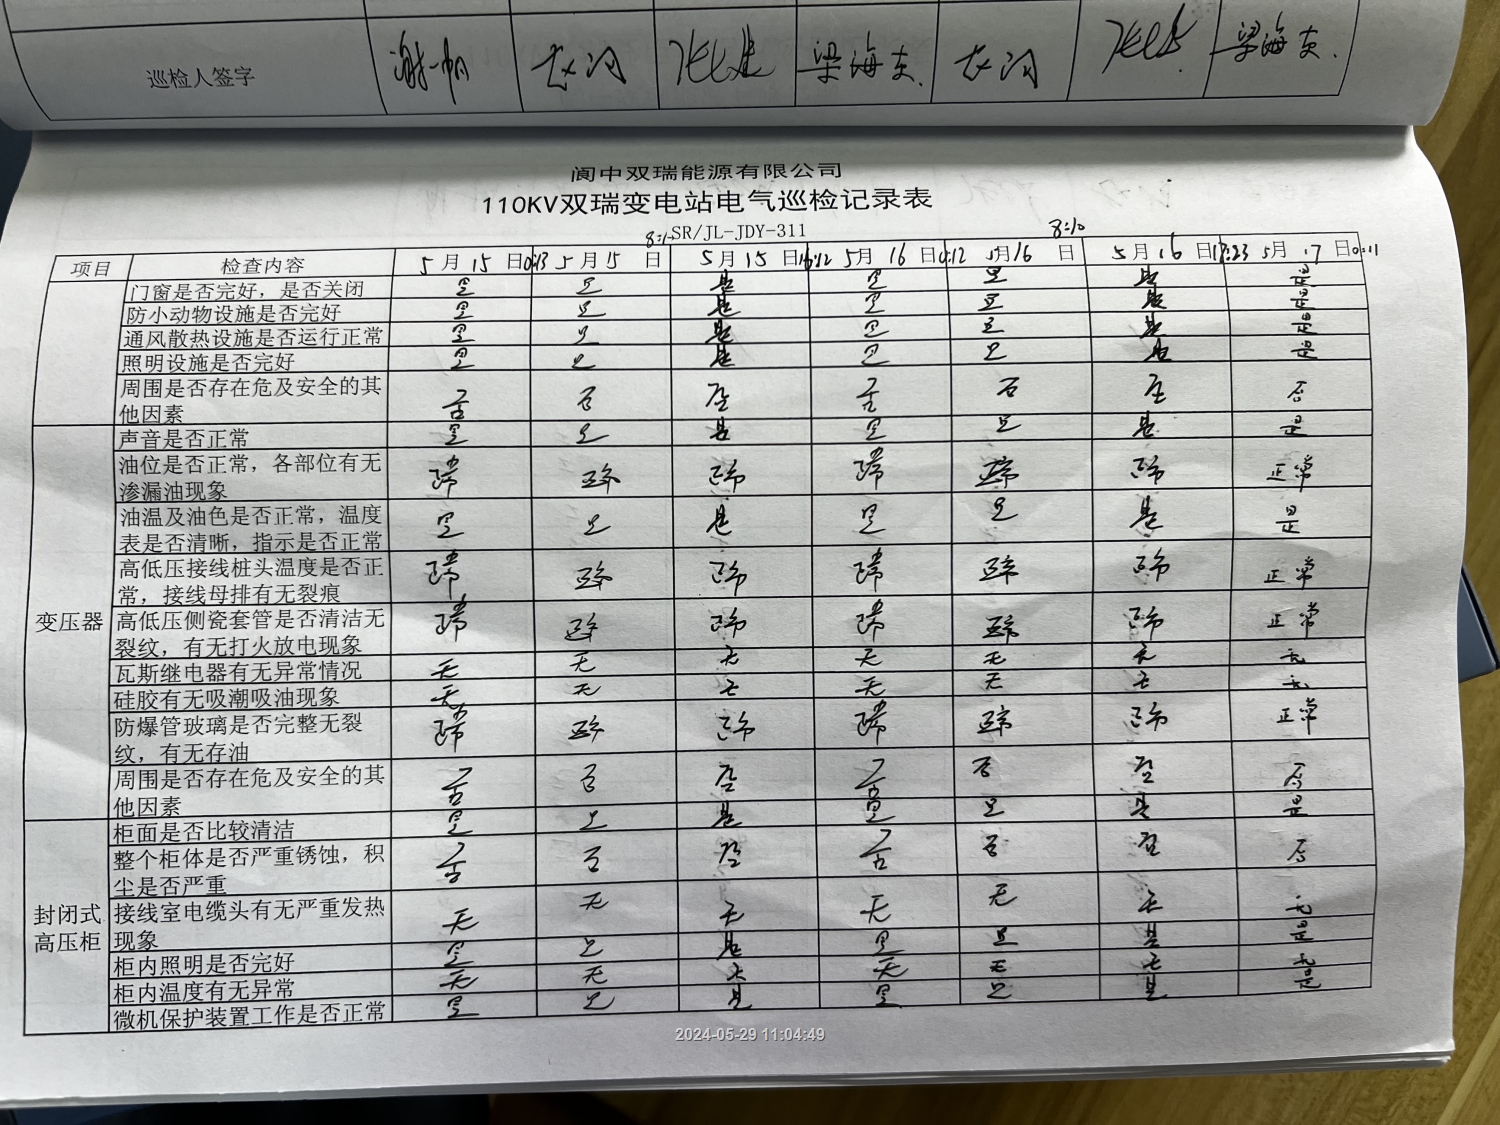 巡检人签字 梁海东 梁海东
阆中双瑞能源有限公司
110KV双瑞变电站电气巡检记录表
SR/JL-JDY-311
项目 检查内容 5月15日 5月15日 5月15日 5月16日 5月16日 5月16日 5月17日
门窗是否完好，是否关闭 是 是 是 是 是 是 是
防小动物设施是否完好 是 是 是 是 是 是 是
通风散热设施是否运行正常 是 是 是 是 是 是 是
照明设施是否完好 是 是 是 是 是 是 是
周围是否存在危及安全的其
他因素 否 否 否 否 否 否 否
变压器
声音是否正常 是 是 是 是 是 是 是
油位是否正常，各部位有无
渗漏油现象 正常 正常 正常 正常 正常 正常 正常
油温及油色是否正常，温度
表是否清晰，指示是否正常 是 是 是 是 是 是 是
高低压接线桩头温度是否正
常，接线母排有无裂痕 正常 正常 正常 正常 正常 正常 正常
高低压侧瓷套管是否清洁无
裂纹，有无打火放电现象 正常 正常 正常 正常 正常 正常 正常
瓦斯继电器有无异常情况 无 无 无 无 无 无 无
硅胶有无吸潮吸油现象 无 无 无 无 无 无 无
防爆管玻璃是否完整无裂
纹，有无存油 正常 正常 正常 正常 正常 正常 正常
周围是否存在危及安全的其
他因素 否 否 否 否 否 否 否
封闭式
高压柜
柜面是否比较清洁 是 是 是 是 是 是 是
整个柜体是否严重锈蚀，积
尘是否严重 否 否 否 否 否 否 否
接线室电缆头有无严重发热
现象 无 无 无 无 无 无 无
柜内照明是否完好 是 是 是 是 是 是 是
柜内温度有无异常 无 无 无 无 无 无 无
微机保护装置工作是否正常 是 是 是 是 是 是 是
2024-05-29 11:04:49